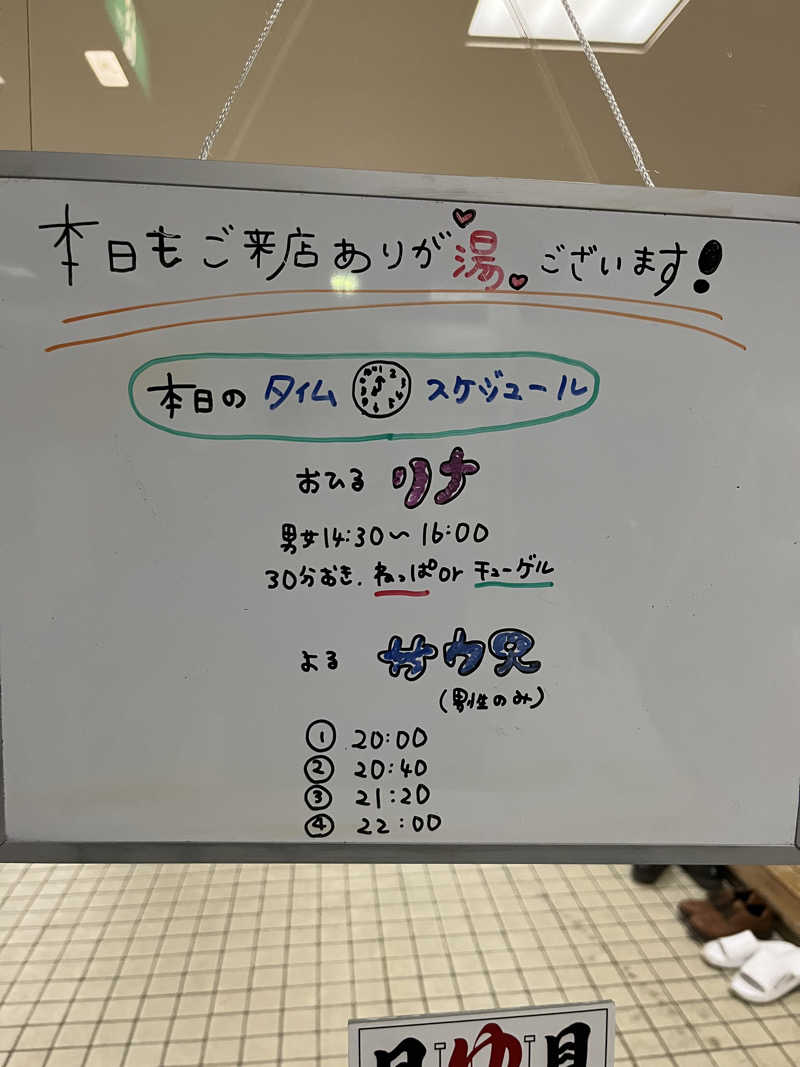 本日もご来店ありが湯ございます!
本日のタイムスケジュール
おひる リナ
男女14:30〜16:00
30分おき、ねっぱ or チューゲル
よる サウ兄
(男性のみ)
① 20:00
② 20:40
③ 21:20
④ 22:00
ゆ